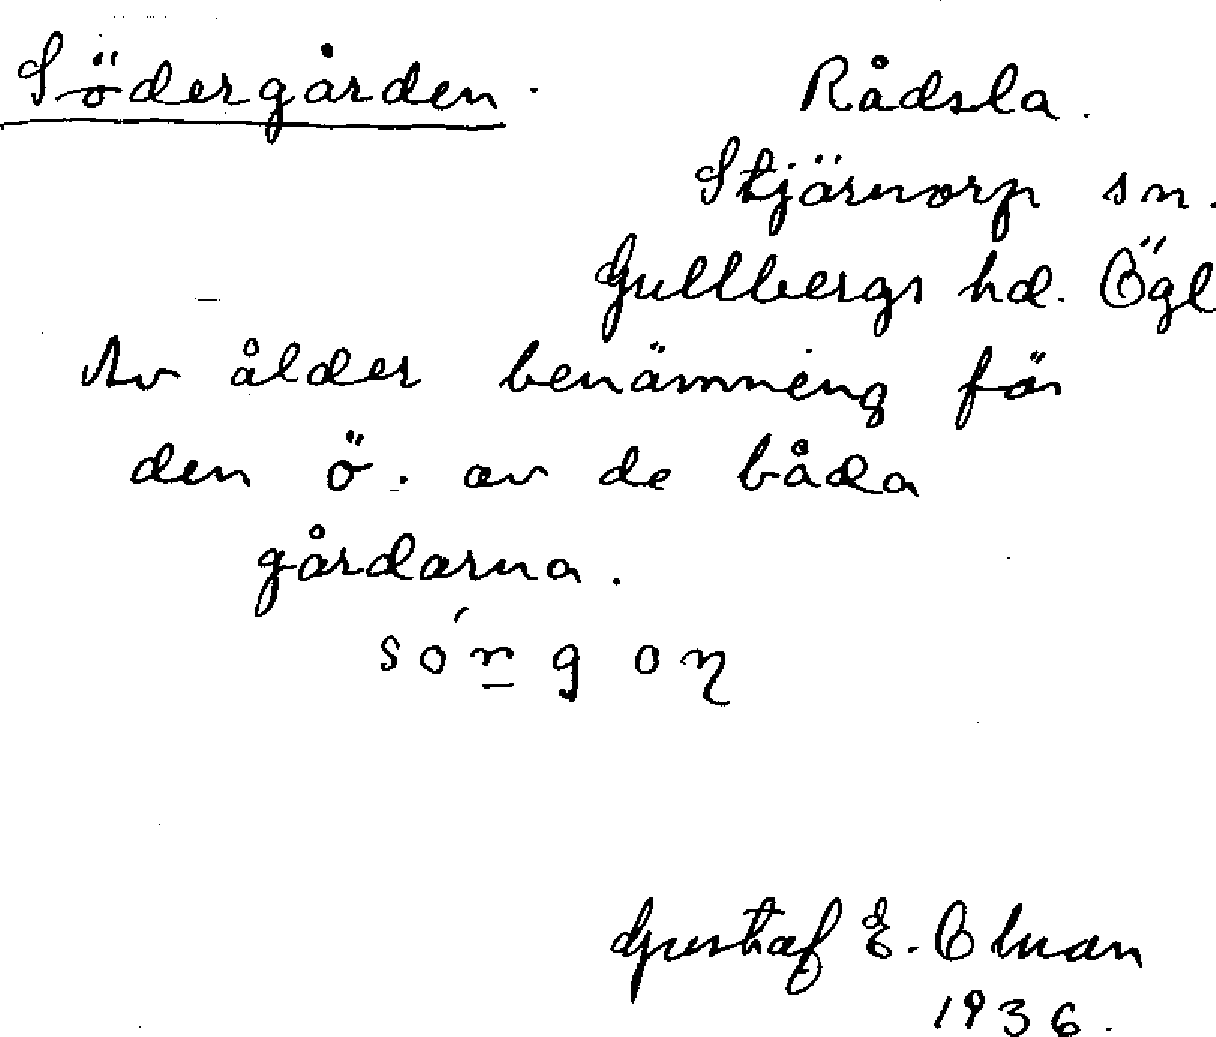 Södergården.
Rådsla.
Stjärnorp sn.
Gullbergs hd. Ögl
Av ålder benämning för
den ö. av de båda
gårdarna.
Gustaf E.
1936.